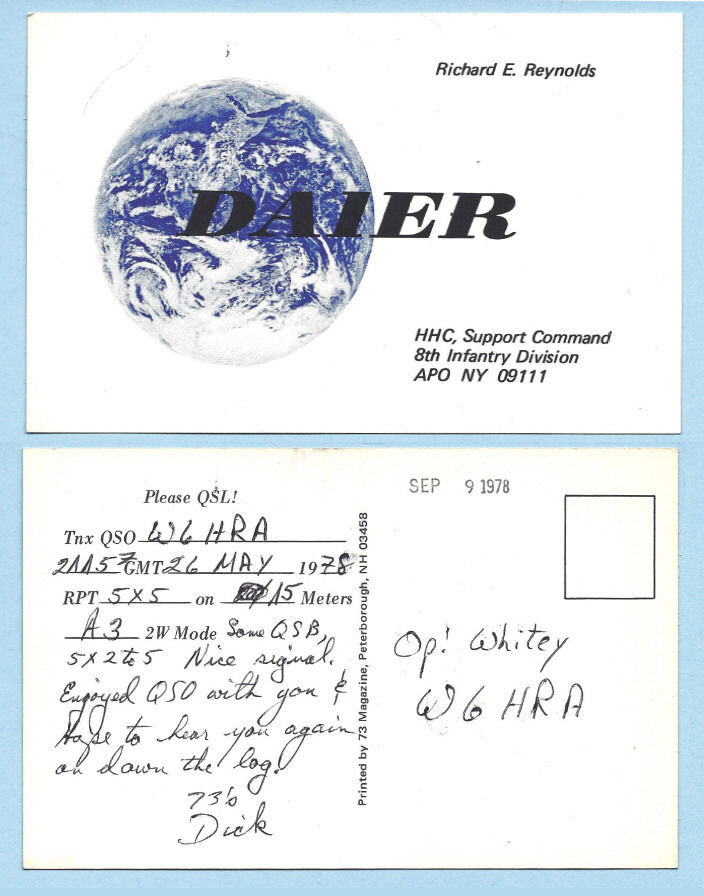 Richard E. Reynolds
DA1ER
HHC, Support Command
8th Infantry Division
APO NY 09111
Please QSL!
Tnx QSO W6HRA
GMT 26 MAY 1978
RPT 5X5 on 15 Meters
A3 2W Mode Some QSB,
5X2 to 5 Nice signal.
Enjoyed QSO with you &
hope to hear you again
on down the log.
73's
Dick
Printed by 73 Magazine, Peterborough, NH 03458
SEP 9 1978
Op! Whitey
W6HRA